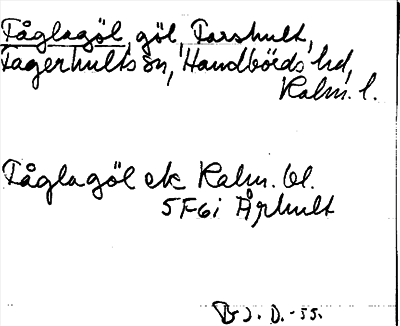 Fåglagöl, göl, Farshult,
Fagerhults sn, Handbörds hd,
Kalm. l.
Fåglagöl ek Kalm. bl.
5F6i Århult
J. D. -55.